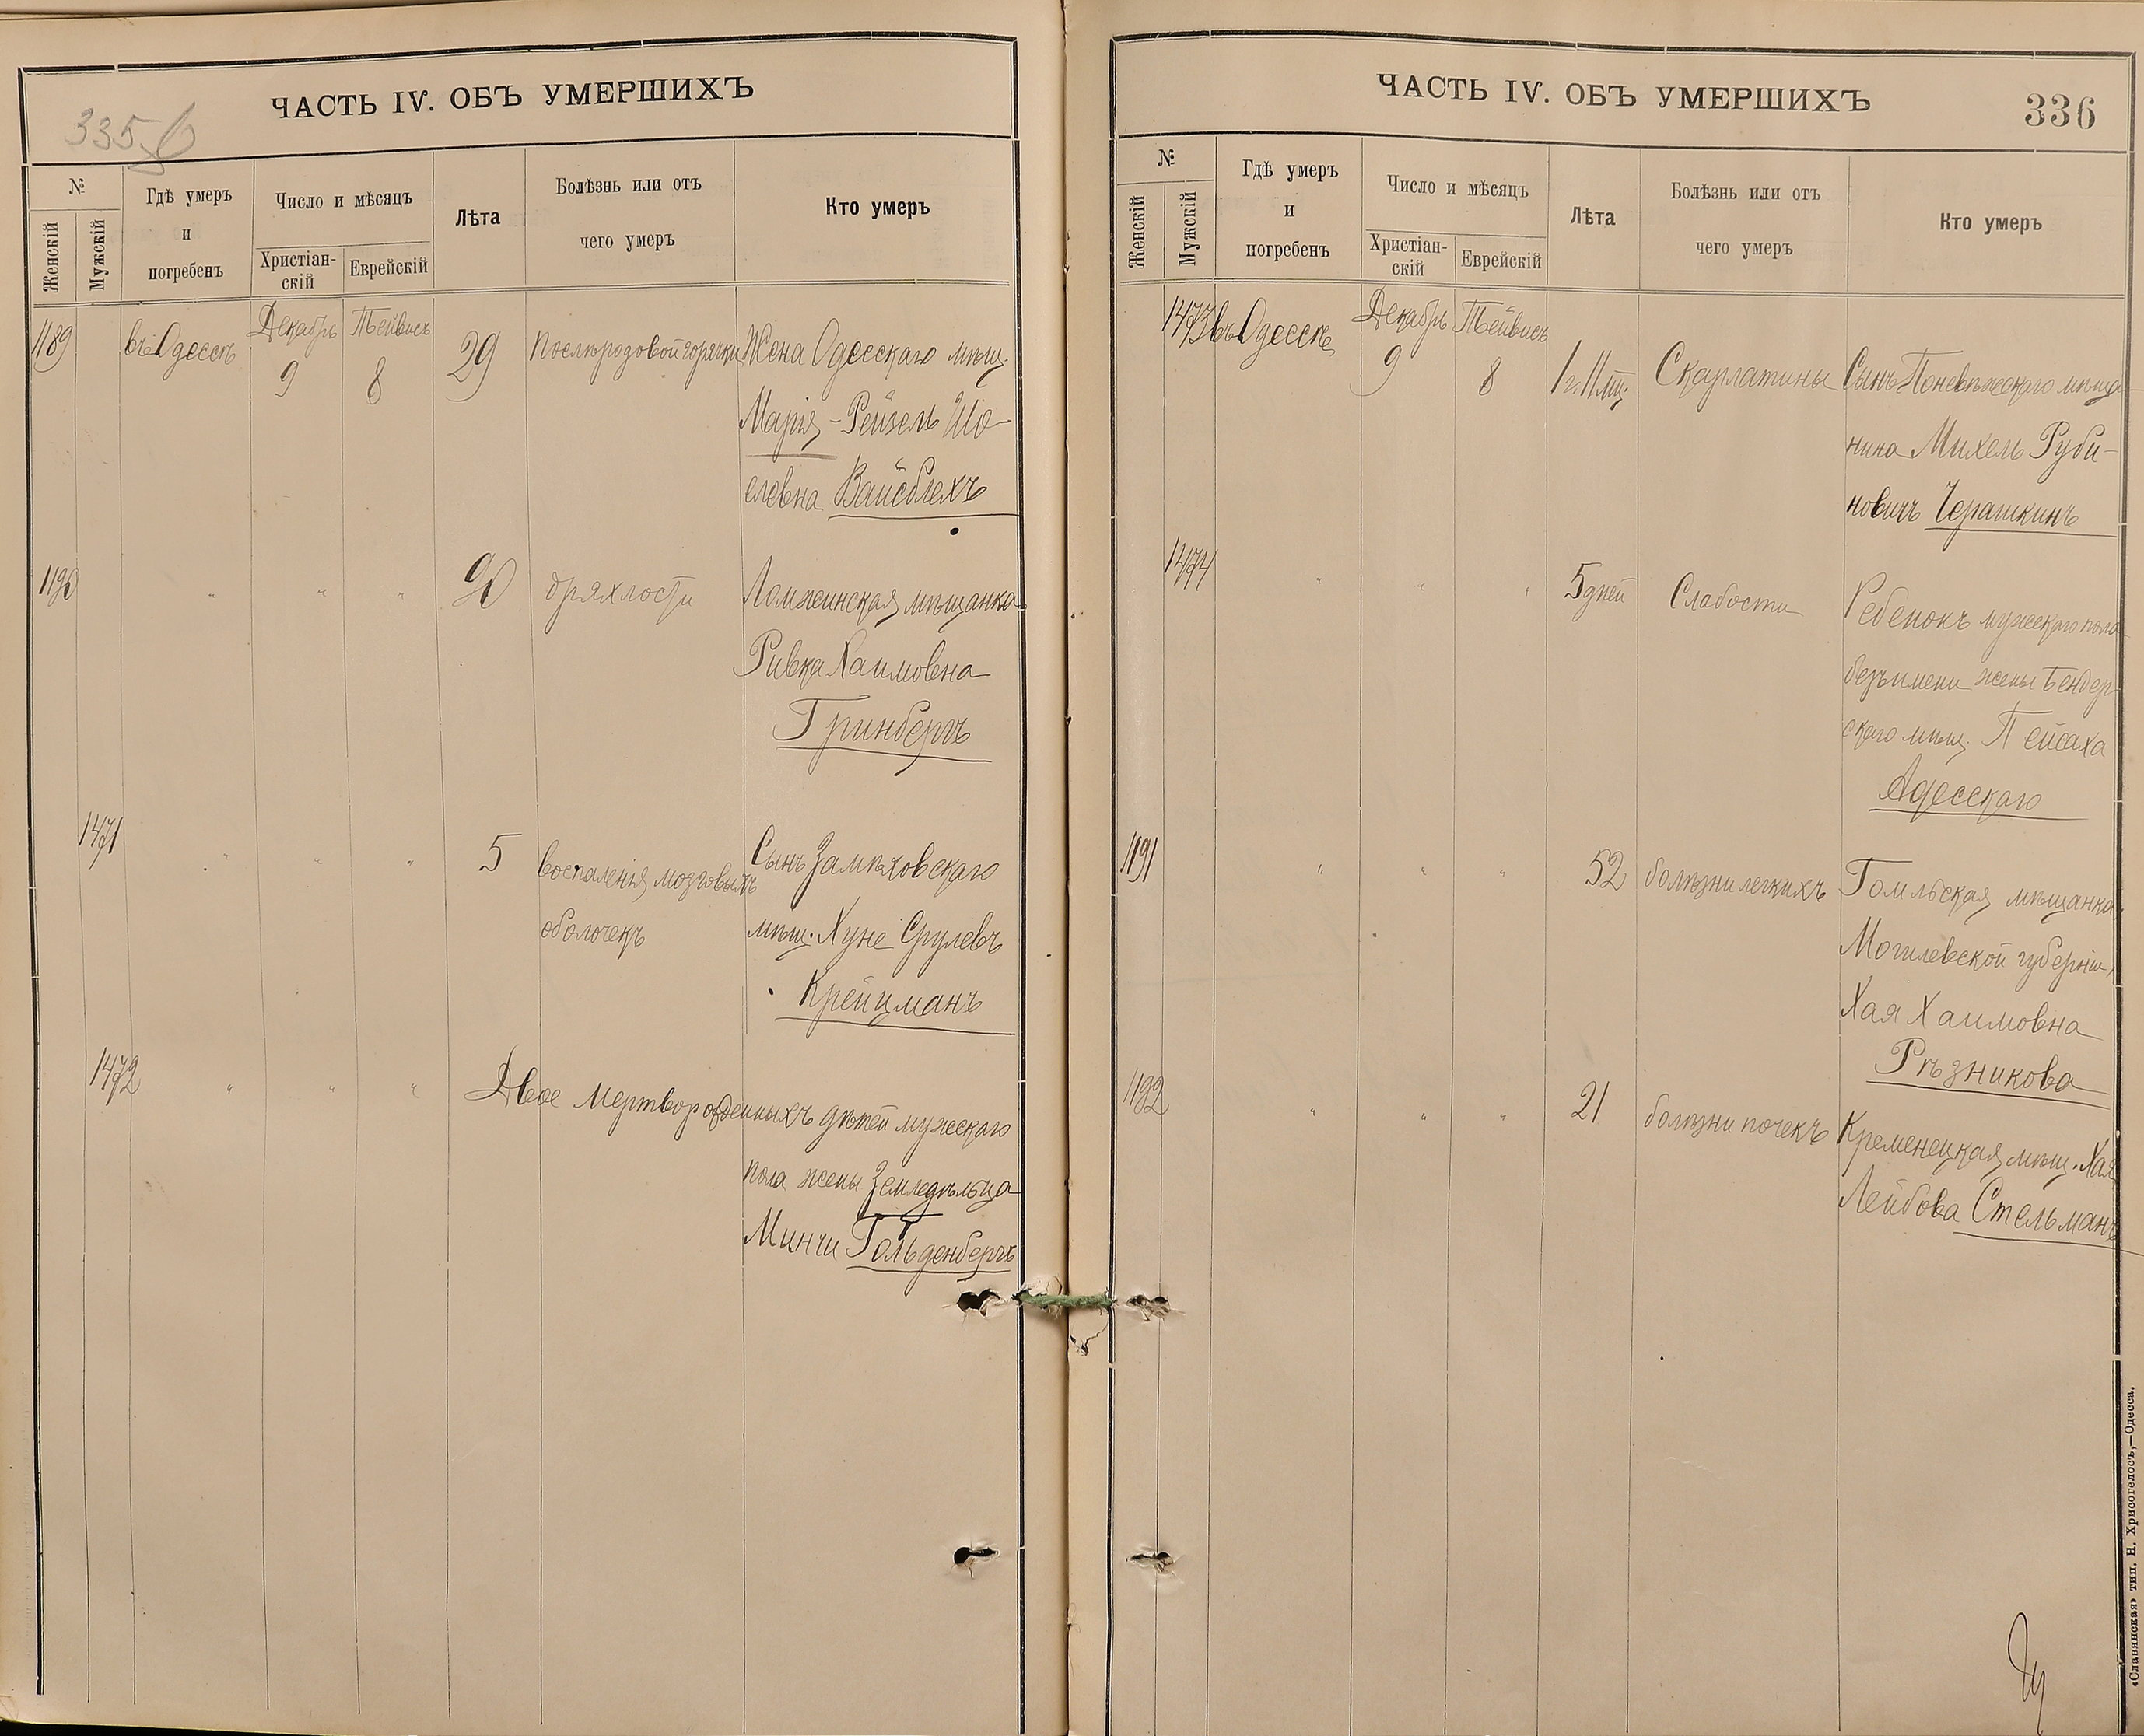 ЧАСТЬ IV. ОБЪ УМЕРШИХЪ
335
№
Женскій
Мужскій
Гдѣ умеръ
и
погребенъ
Число и мѣсяцъ
Христіан-
скій
Еврейскій
Лѣта
Болѣзнь или отъ
чего умеръ
Кто умеръ
1189
въ Одессѣ
Декабрь
9
Тейвисъ
8
29
Послѣродовой горячки
Жена Одесскаго мѣщ.
Марія-Рейзель Шо-
елевна Вайсблехъ
1190
"
"
"
90
дряхлости
Ломжинская мѣщанка
Ривка Хаимовна
Гринбергъ
1471
"
"
"
5
воспаленія мозговыхъ
оболочекъ
Сынъ Замѣховскаго
мѣщ. Хуне Срулевъ
Крейцманъ
1472
"
"
"
Двое мертворожденныхъ дѣтей мужскаго
пола жены Земледѣльца
Минчи Гольденбергъ
ЧАСТЬ IV. ОБЪ УМЕРШИХЪ
336
№
Женскій
Мужскій
Гдѣ умеръ
и
погребенъ
Число и мѣсяцъ
Христіан-
скій
Еврейскій
Лѣта
Болѣзнь или отъ
чего умеръ
Кто умеръ
1473
въ Одессѣ
Декабрь
9
Тейвисъ
8
1 г. 11 мц.
Скарлатины
Сынъ Поневѣжскаго мѣща-
нина Михель Руби-
новичъ Черашкинъ
1474
"
"
"
5 дней
Слабости
Ребенокъ мужскаго пола
безъ имени жены Бендер-
скаго мѣщ. Пейсаха
Адесскаго
1191
"
"
"
52
болѣзни легкихъ
Гомльская мѣщанка
Могилевской губерніи
Хая Хаимовна
Рѣзникова
1192
"
"
"
21
болѣзни почекъ
Кременецкая мѣщ. Хая
Лейбова Стельманъ
«Славянская» тип. Н. Хрисогелосъ,—Одесса.